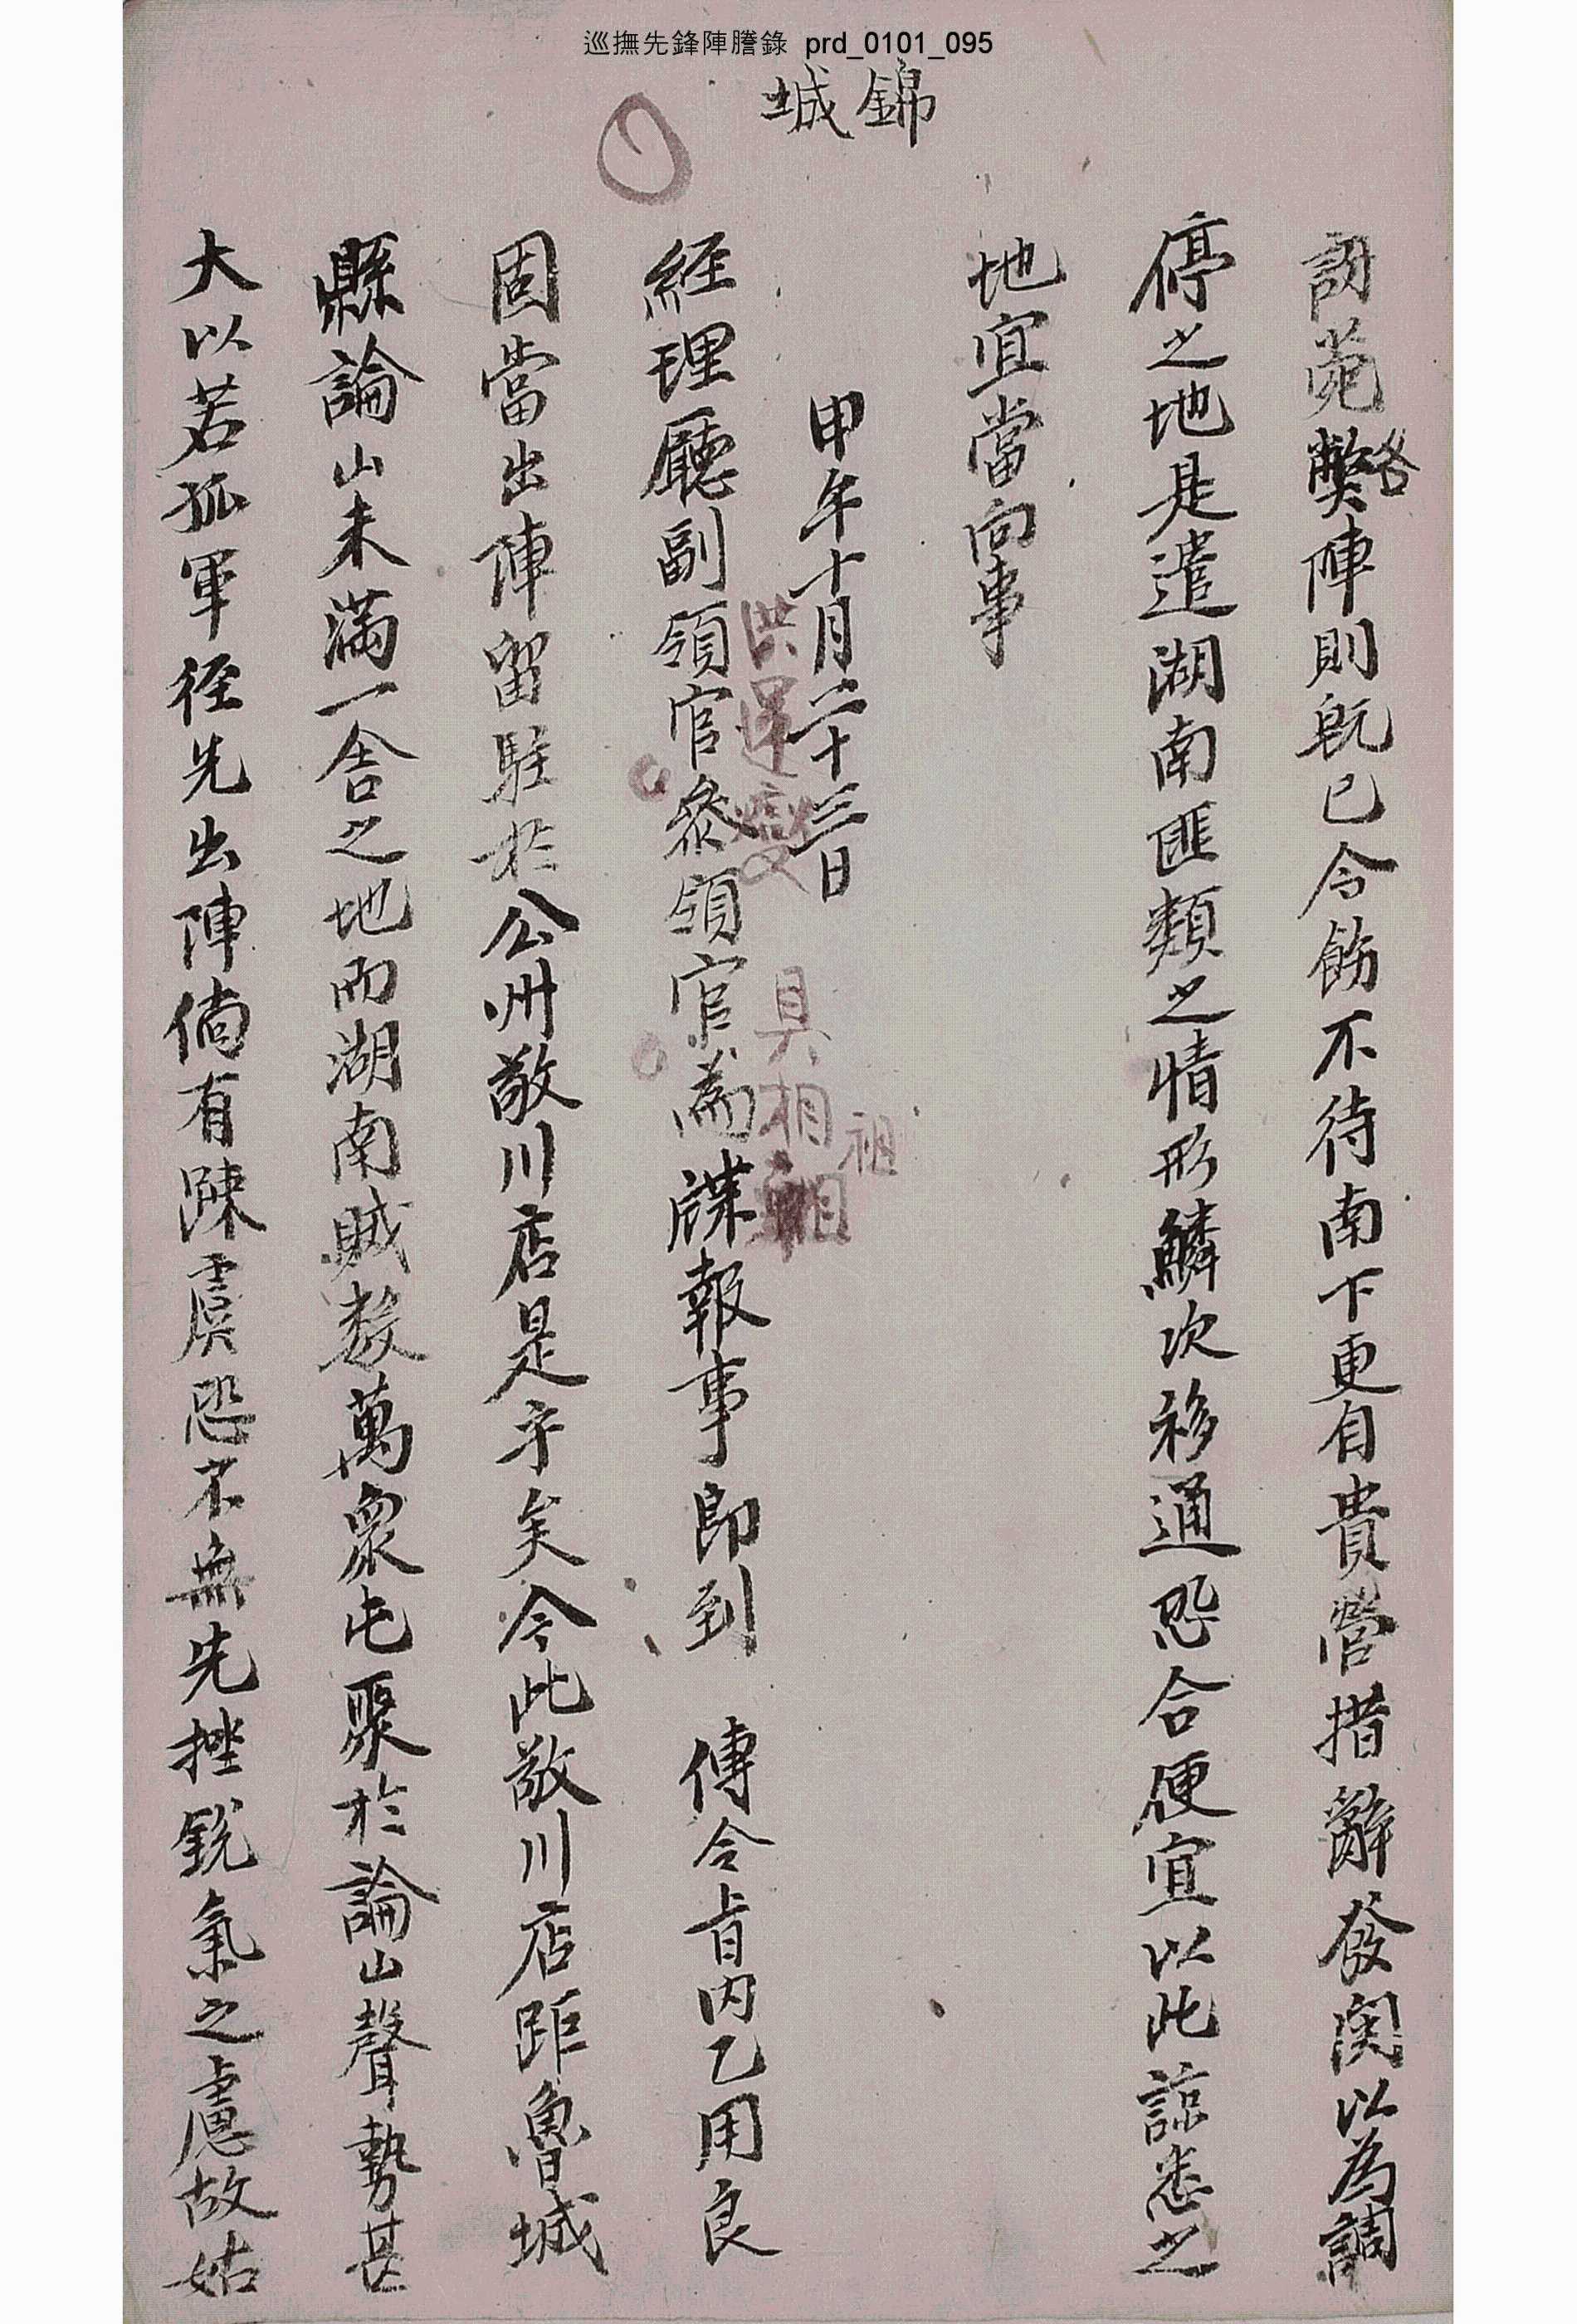 巡撫先鋒陣謄錄 prd_0101_095
錦城
各
陣則旣已令飭不待南下更自貴營措辭發関以為調
停之地是遣湖南匪類之情形鱗次移通恐合便宜以此諒悉之
地宜當向事
甲午十月二十三日
洪運燮
具相祖
祖
経理廳副領官叅領官為牒報事即到 傳令㫖內乙用良
固當出陣留駐於公州敬川店是乎矣今此敬川店距魯城
縣論山未滿一舍之地而湖南賊數萬衆屯聚於論山聲勢甚
大以若孤軍徑先出陣倘有踈虞恐不無先挫銳氣之慮故姑